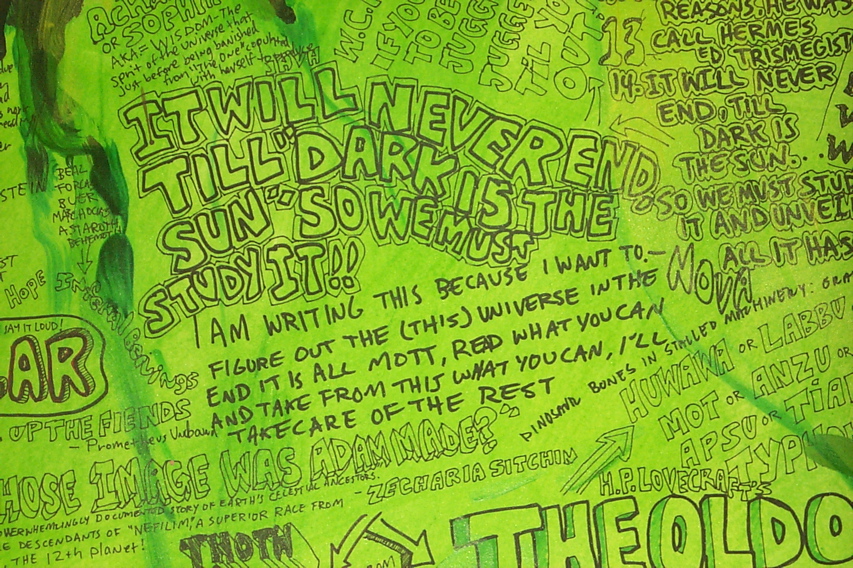 OR SOPHIA
AKA= WISDOM-THE
spirit of the Universe that,
Just before being banished
from the One "coputed
with herself
W.C.
IF YOU
TO BE
JUGG
TIL YO
OUT
REASONS. HE WAS
13. CALL HERMES
ED TRISMEGIST
14. IT WILL NEVER
END, TILL
DARK IS
THE SUN...
SO WE MUST STUD
IT AND UNVEIL
ALL IT HAS
IT WILL NEVER END,
TILL "DARK IS THE
SUN" SO WE MUST
STUDY IT!!
I AM WRITING THIS BECAUSE I WANT TO—
FIGURE OUT THE (THIS) UNIVERSE IN THE
END IT IS ALL MOTT, READ WHAT YOU CAN
AND TAKE FROM THIS WHAT YOU CAN, I'LL
TAKE CARE OF THE REST
STEIN
BUER
ASTAROTH
BEHEMOTH
HOPE
Infernal Beings
SAY IT LOUD!
AR
UP THE FIENDS
- Prometheus Unbound
NOVA
DINOSAUR BONES IN STALLED MACHINERY:
HUWAWA OR LABBU
MOT OR ANZU OR
APSU OR TIA
TYPHO
HOSE IMAGE WAS ADAM MADE?"
- ZECHARIA SITCHIN
OVERWHELMINGLY DOCUMENTED STORY OF EARTH'S CELESTIAL ANCESTORS.
E DESCENDANTS OF "NEFILIM", A SUPERIOR RACE FROM
THE 12th planet!
THOTH
H.P. LOVECRAFT'S
THE OLD O